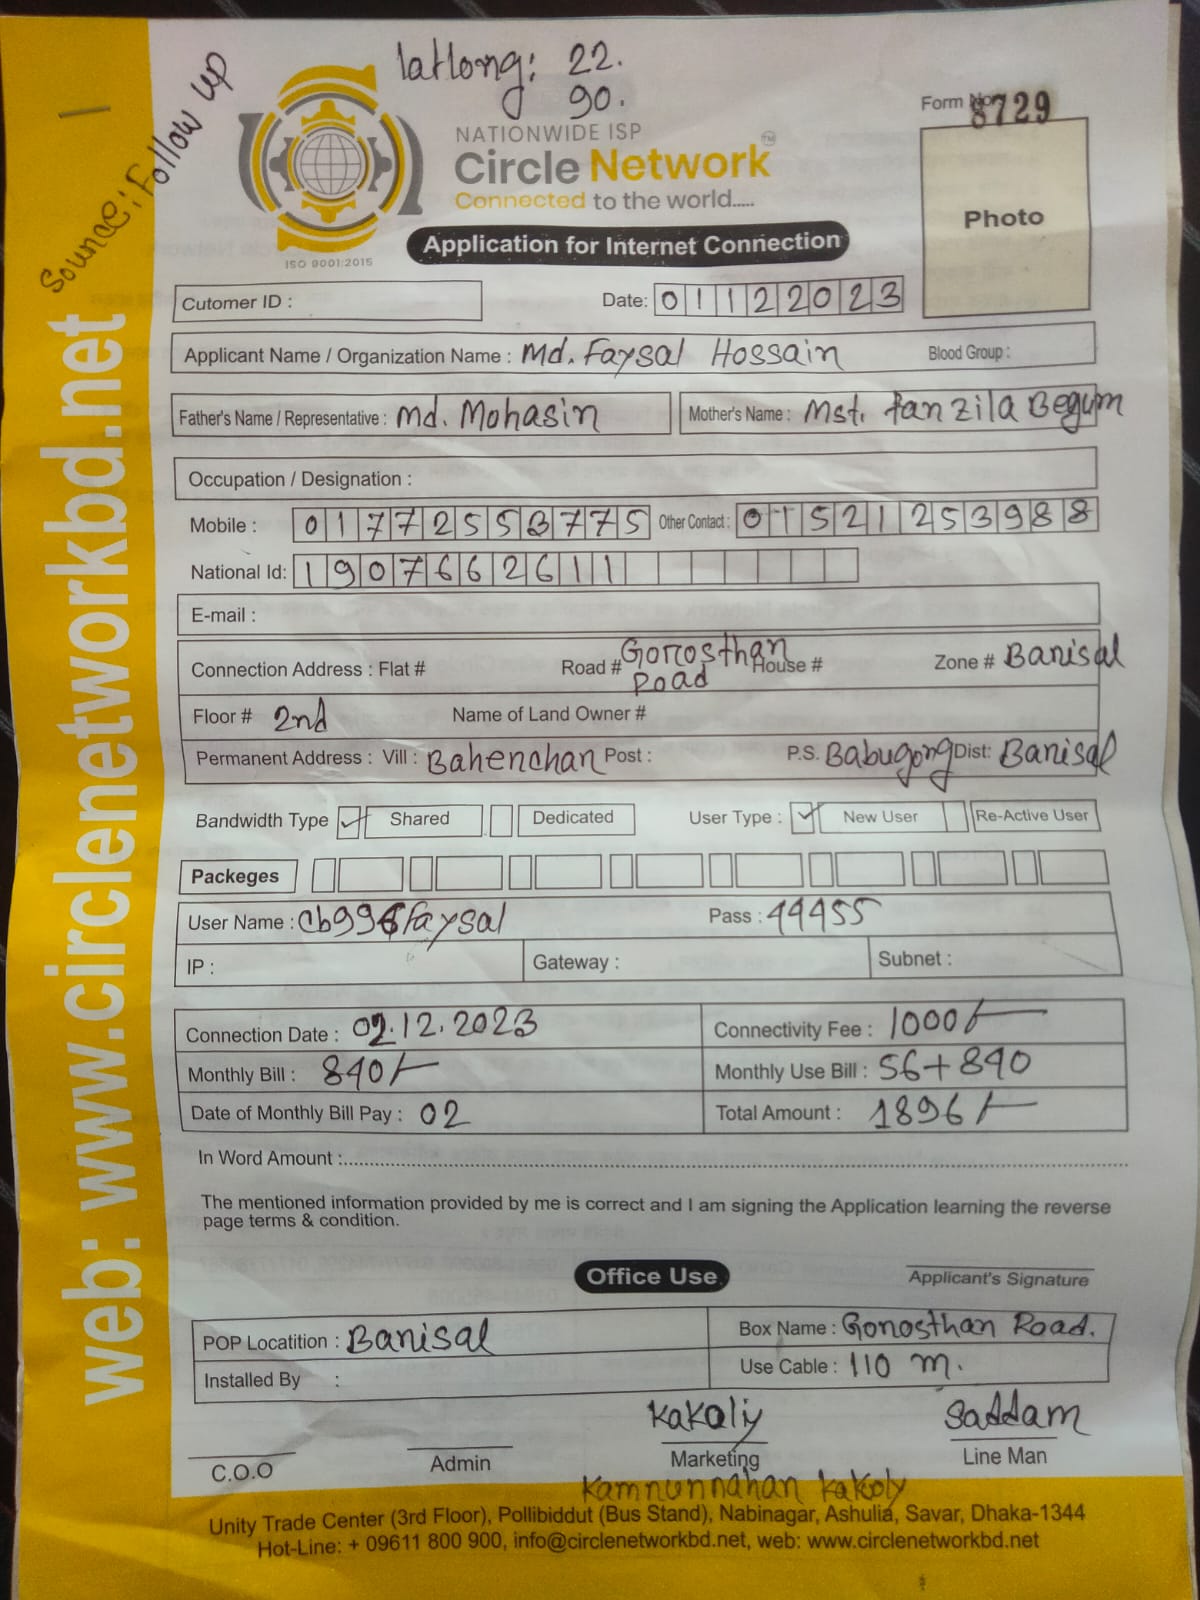 Source: Follow up
latlong: 22.
90.
NATIONWIDE ISP
Circle Network TM
Connected to the world.....
ISO 9001:2015
Form No. 8729
Photo
Application for Internet Connection
Cutomer ID :
Date: 01122023
Applicant Name / Organization Name : Md. Faysal Hossain Blood Group :
Father's Name / Representative : Md. Mohasin Mother's Name : Mst. Tanzila Begum
Occupation / Designation :
Mobile : 01772553775 Other Contact : 01521253988
National Id: 1907662611
E-mail :
Connection Address : Flat # Road # Gorosthan Road House # Zone # Barisal
Floor # 2nd Name of Land Owner #
Permanent Address : Vill : Baherchar Post : P.S. Babugong Dist: Barisal
Bandwidth Type Shared Dedicated User Type : New User Re-Active User
Packeges
User Name : cb996faysal Pass : 44455
IP : Gateway : Subnet :
Connection Date : 02.12.2023 Connectivity Fee : 1000/-
Monthly Bill : 840/- Monthly Use Bill : 56+840
Date of Monthly Bill Pay : 02 Total Amount : 1896/-
In Word Amount :
The mentioned information provided by me is correct and I am signing the Application learning the reverse
page terms & condition.
Applicant's Signature
Office Use
POP Locatition : Barisal Box Name : Gorosthan Road.
Installed By : Use Cable : 110 m.
Kakoliy Saddam
C.O.O Admin Marketing Line Man
Kamrunnahar Kakoly
Unity Trade Center (3rd Floor), Pollibiddut (Bus Stand), Nabinagar, Ashulia, Savar, Dhaka-1344
Hot-Line: + 09611 800 900, info@circlenetworkbd.net, web: www.circlenetworkbd.net
web: www.circlenetworkbd.net